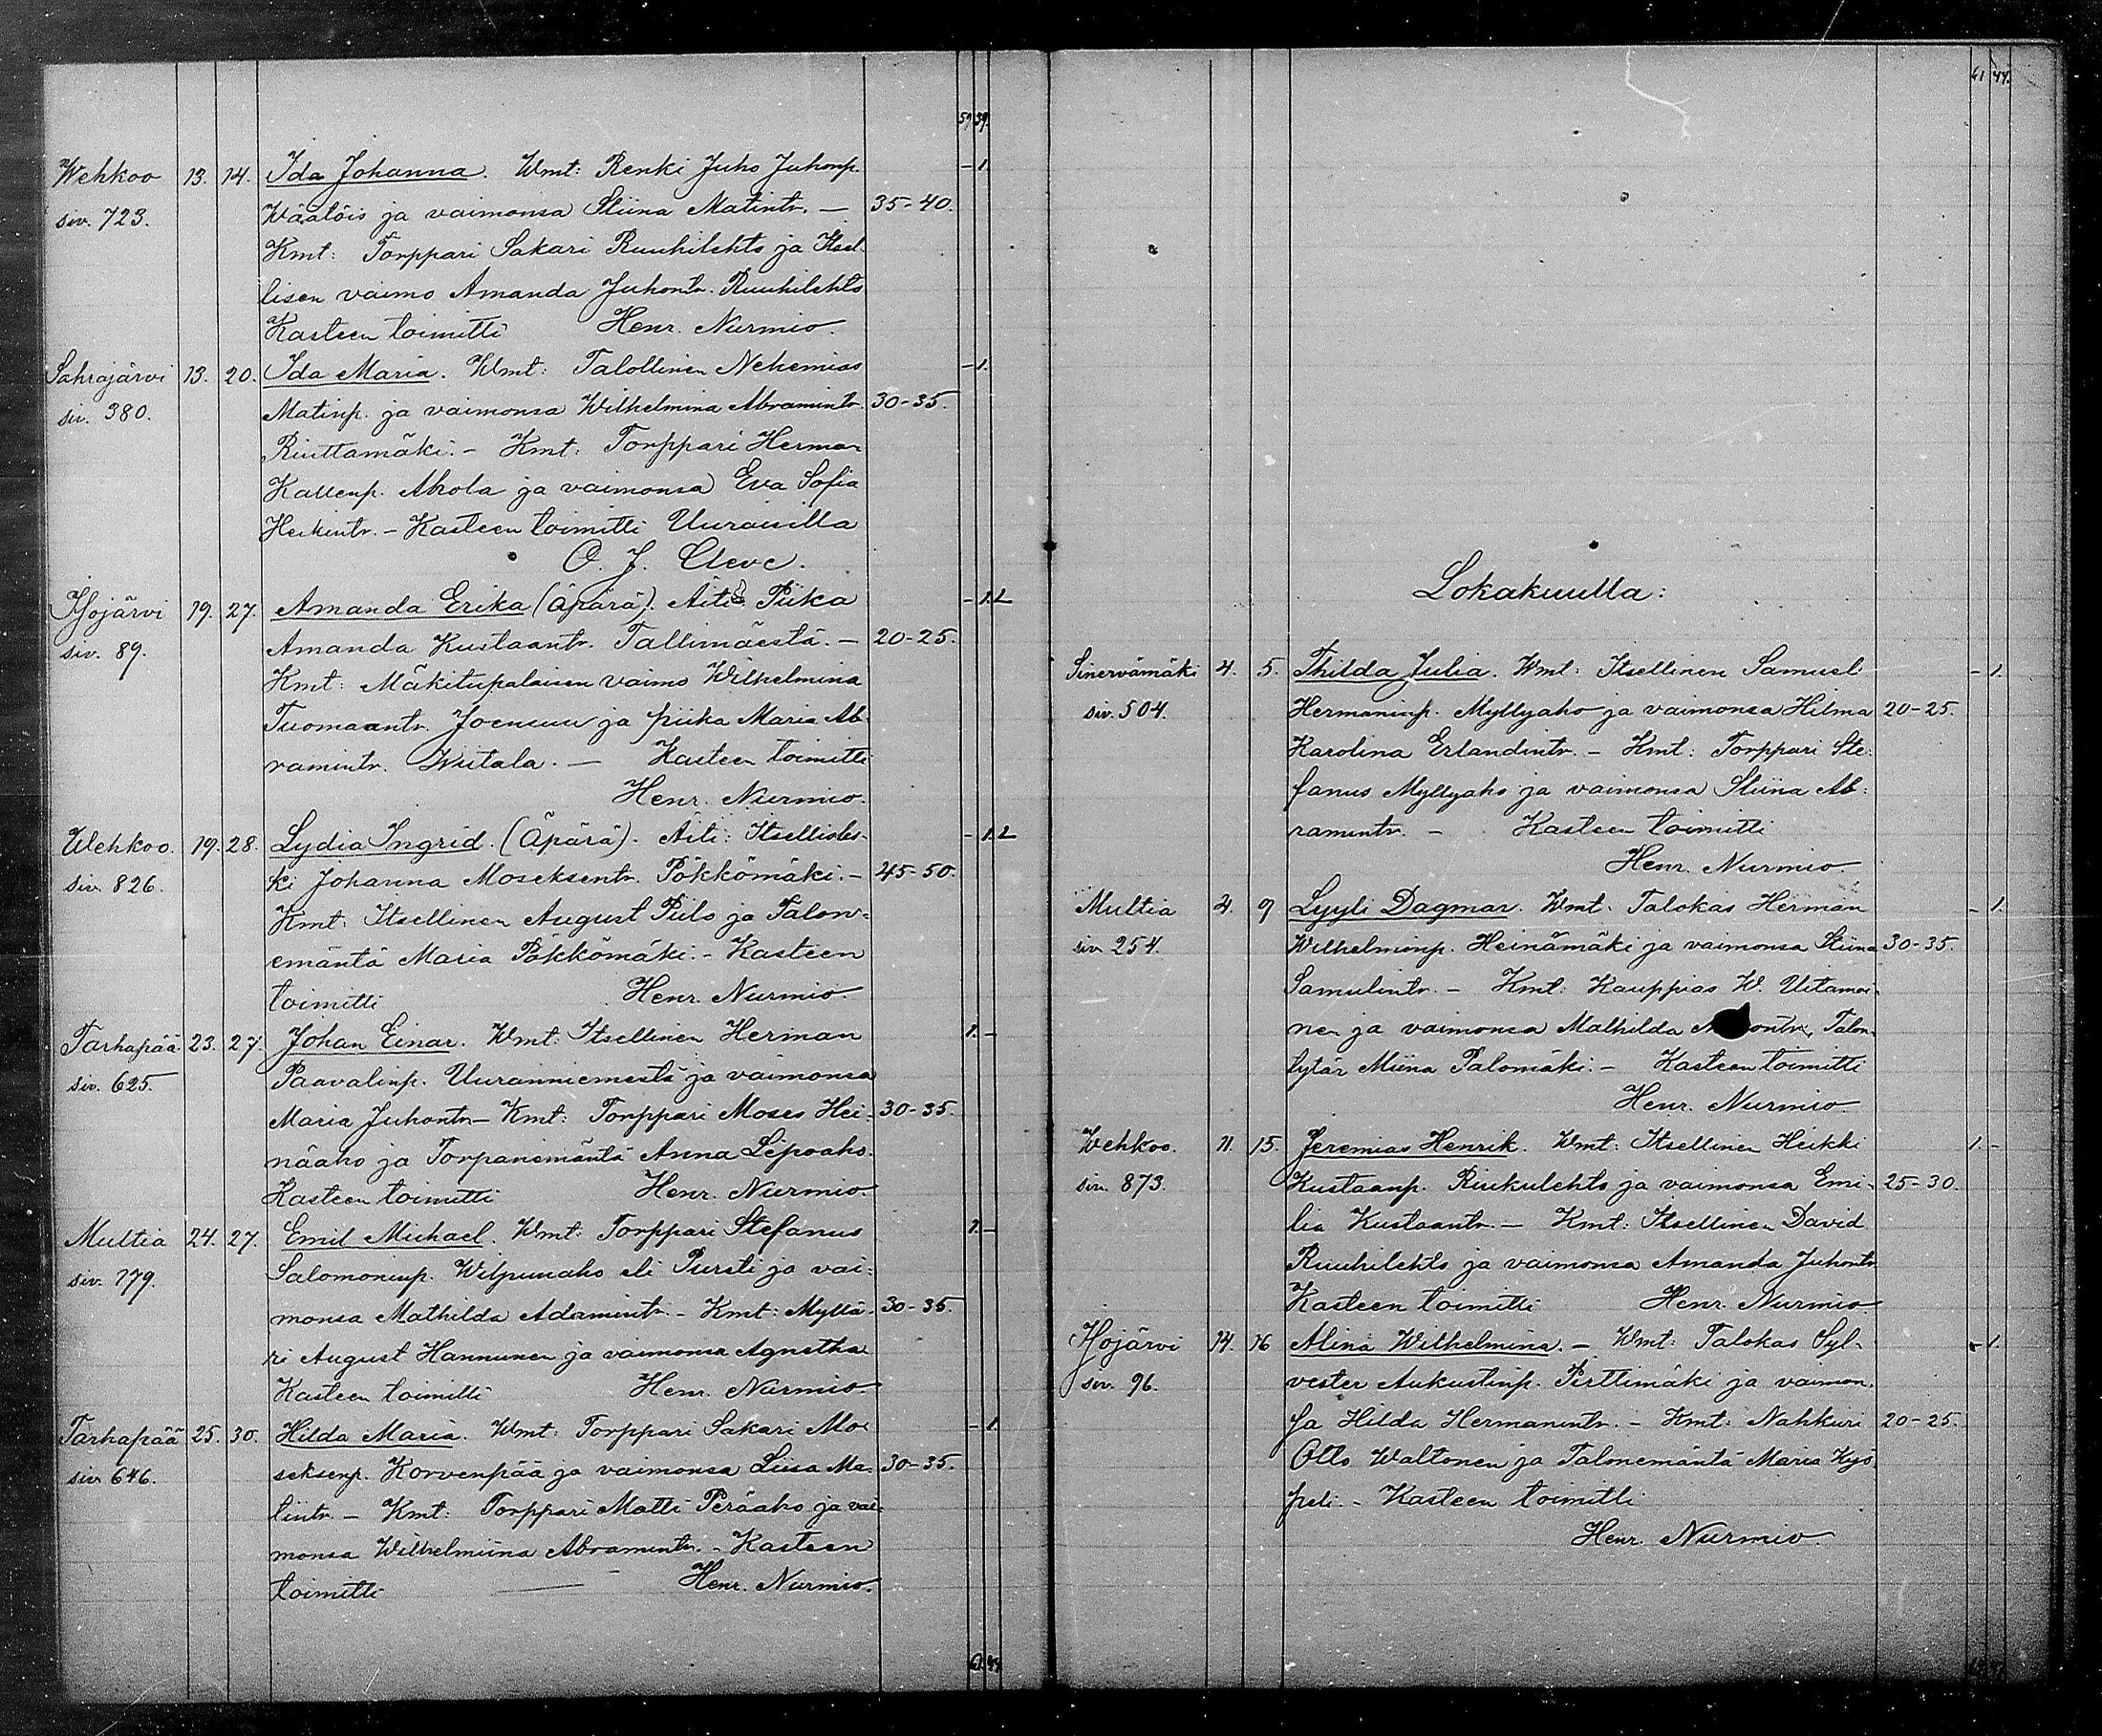 59 39.
Wehkoo 13. 14. Ida Johanna. Wmt: Renki Juho Juhonp. - 1.
siv. 723. Väätöis ja vaimonsa Stiina Matintr. — 35-40.
Kmt: Torppari Sakari Ruuhilehto ja Itsel-
lisen vaimo Amanda Juhontr. Ruuhilehto
Kasteen toimitti Henr. Nurmio.
Sahrajärvi 13. 20. Ida Maria. Wmt: Talollinen Nehemias - 1.
siv. 380. Matinp. ja vaimonsa Wilhelmina Abramintr. 30-35.
Riuttamäki. - Kmt: Torppari Herman
Kallenp. Ahola ja vaimonsa Eva Sofia
Heikintr. - Kasteen toimitti Uuraisilla
O. J. Cleve.
Hojärvi 19. 27. Amanda Erika (Äpärä). Äiti: Piika - 1.L
siv. 89. Amanda Kustaantr. Tallimäestä. — 20-25.
Kmt: Mäkitupalaisen vaimo Wilhelmina
Tuomaantr. Joensuu ja piika Maria Ab-
ramintr. Wiitala. — Kasteen toimitti
Henr. Nurmio.
Wehkoo. 19. 28. Lydia Ingrid. (Äpärä). Äiti: Itsellisles- - 1.L
siv. 826. ki Johanna Moseksentr. Pökkömäki. - 45-50.
Kmt: Itsellinen August Piilo ja Talon-
emäntä Maria Pökkömäki. - Kasteen
toimitti Henr. Nurmio.
Tarhapää 23. 27. Johan Einar. Wmt: Itsellinen Herman 1. -
siv. 625. Paavalinp. Uuranniemestä ja vaimonsa
Maria Juhontr - Kmt: Torppari Moses Hei- 30-35.
näaho ja Torpanemäntä Anna Lepoaho.
Kasteen toimitti Henr. Nurmio.
Multia 24. 27. Emil Michael. Wmt: Torppari Stefanus 1. -
siv. 179. Salomoninp. Wilpunaho eli Pursti ja vai-
monsa Mathilda Adamintr. - Kmt: Myllä- 30-35.
ri August Hannunen ja vaimonsa Agnetha
Kasteen toimitti Henr. Nurmio.
Tarhapää 25. 30. Hilda Maria. Wmt: Torppari Sakari Mo- - 1.
siv 646. seksenp. Korvenpää ja vaimonsa Liisa Ma- 30-35.
tintr. - Kmt: Torppari Matti Peräaho ja vai-
monsa Wilhelmiina Abramintr. - Kasteen
toimitti — Henr. Nurmio.
61 44
61 44.
Lokakuulla:
Sinervämäki 4. 5. Thilda Julia. Wmt: Itsellinen Samuel - 1.
siv. 504. Hermaninp. Myllyaho ja vaimonsa Hilma 20-25.
Karolina Erlandintr. - Kmt: Torppari Ste-
fanus Myllyaho ja vaimonsa Stiina Ab-
ramintr. - Kasteen toimitti
Henr. Nurmio.
Multia 4. 9 Lyyli Dagmar. Wmt: Talokas Herman - 1.
siv 254. Wilhelminp. Heinämäki ja vaimonsa Stiina 30-35.
Samulintr. - Kmt: Kauppias W. Uitamoi-
nen ja vaimonsa Mathilda Talon-
tytär Miina Palomäki. - Kasteen toimitti
Henr. Nurmio.
Wehkoo. 11. 15. Jeremias Henrik. Wmt: Itsellinen Heikki 1. -
siv. 873. Kustaanp. Riukulehto ja vaimonsa Emi- 25-30.
lia Kustaantr. — Kmt: Itsellinen David
Ruuhilehto ja vaimonsa Amanda Juhontr
Kasteen toimitti Henr. Nurmio
Hojärvi 14. 16 Alina Wilhelmina. - Wmt: Talokas Syl- - 1.
siv. 96. vester Aukustinp. Pirttimäki ja vaimon-
sa Hilda Hermanintr. - Kmt: Nahkuri 20-25.
Otto Waltonen ja Talonemäntä Maria Kyö-
peli. - Kasteen toimitti
Henr. Nurmio.